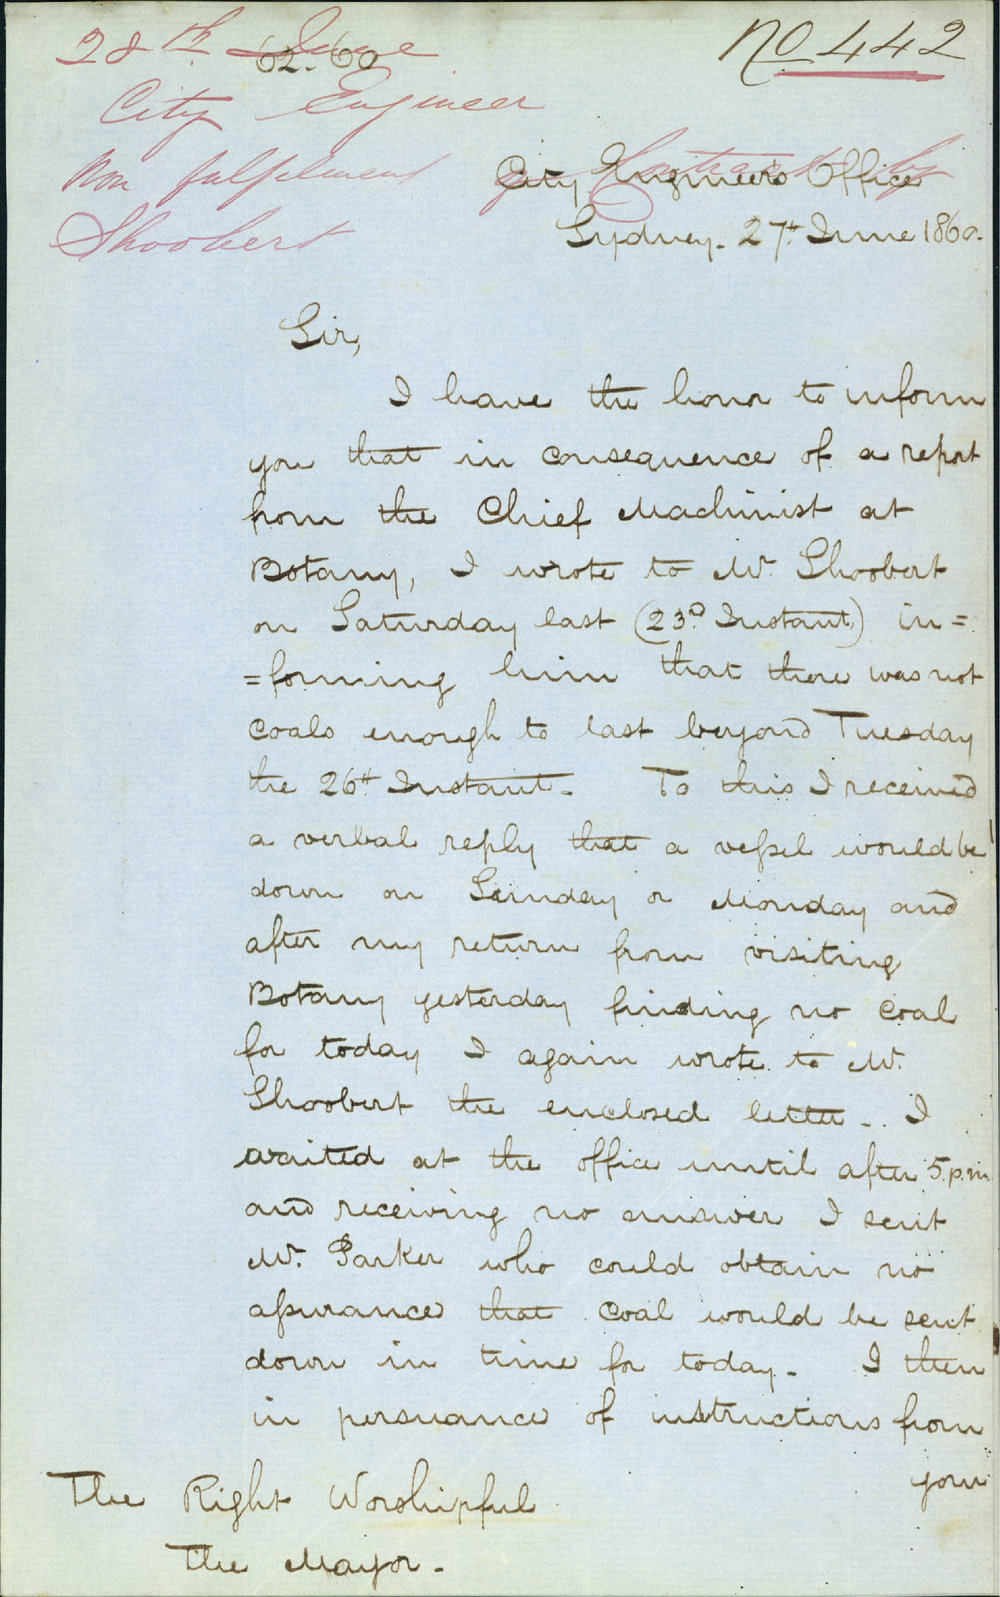 28th June
62.60
No 442
City Engineer
Non fulfilment of Contract by
Shoobert
City Engineer's Office
Sydney. 27th June 1860.
Sir,
I have the honor to inform
you that in consequence of a report
from the Chief Machinist at
Botany, I wrote to Mr. Shoobert
on Saturday last (23D Instant) in=
=forming him that there was not
coals enough to last beyond Tuesday
the 26th Instant. To this I received
a verbal reply that a vessel would be
down on Sunday or Monday and
after my return from visiting
Botany yesterday finding no coal
for today I again wrote to Mr.
Shoobert the enclosed letter. I
waited at the office until after 5.p.m.
and receiving no answer I sent
Mr. Parker who could obtain no
assurance that coal would be sent
down in time for today. I then
in persuance of instructions from
you
The Right Worshipful
The Mayor.